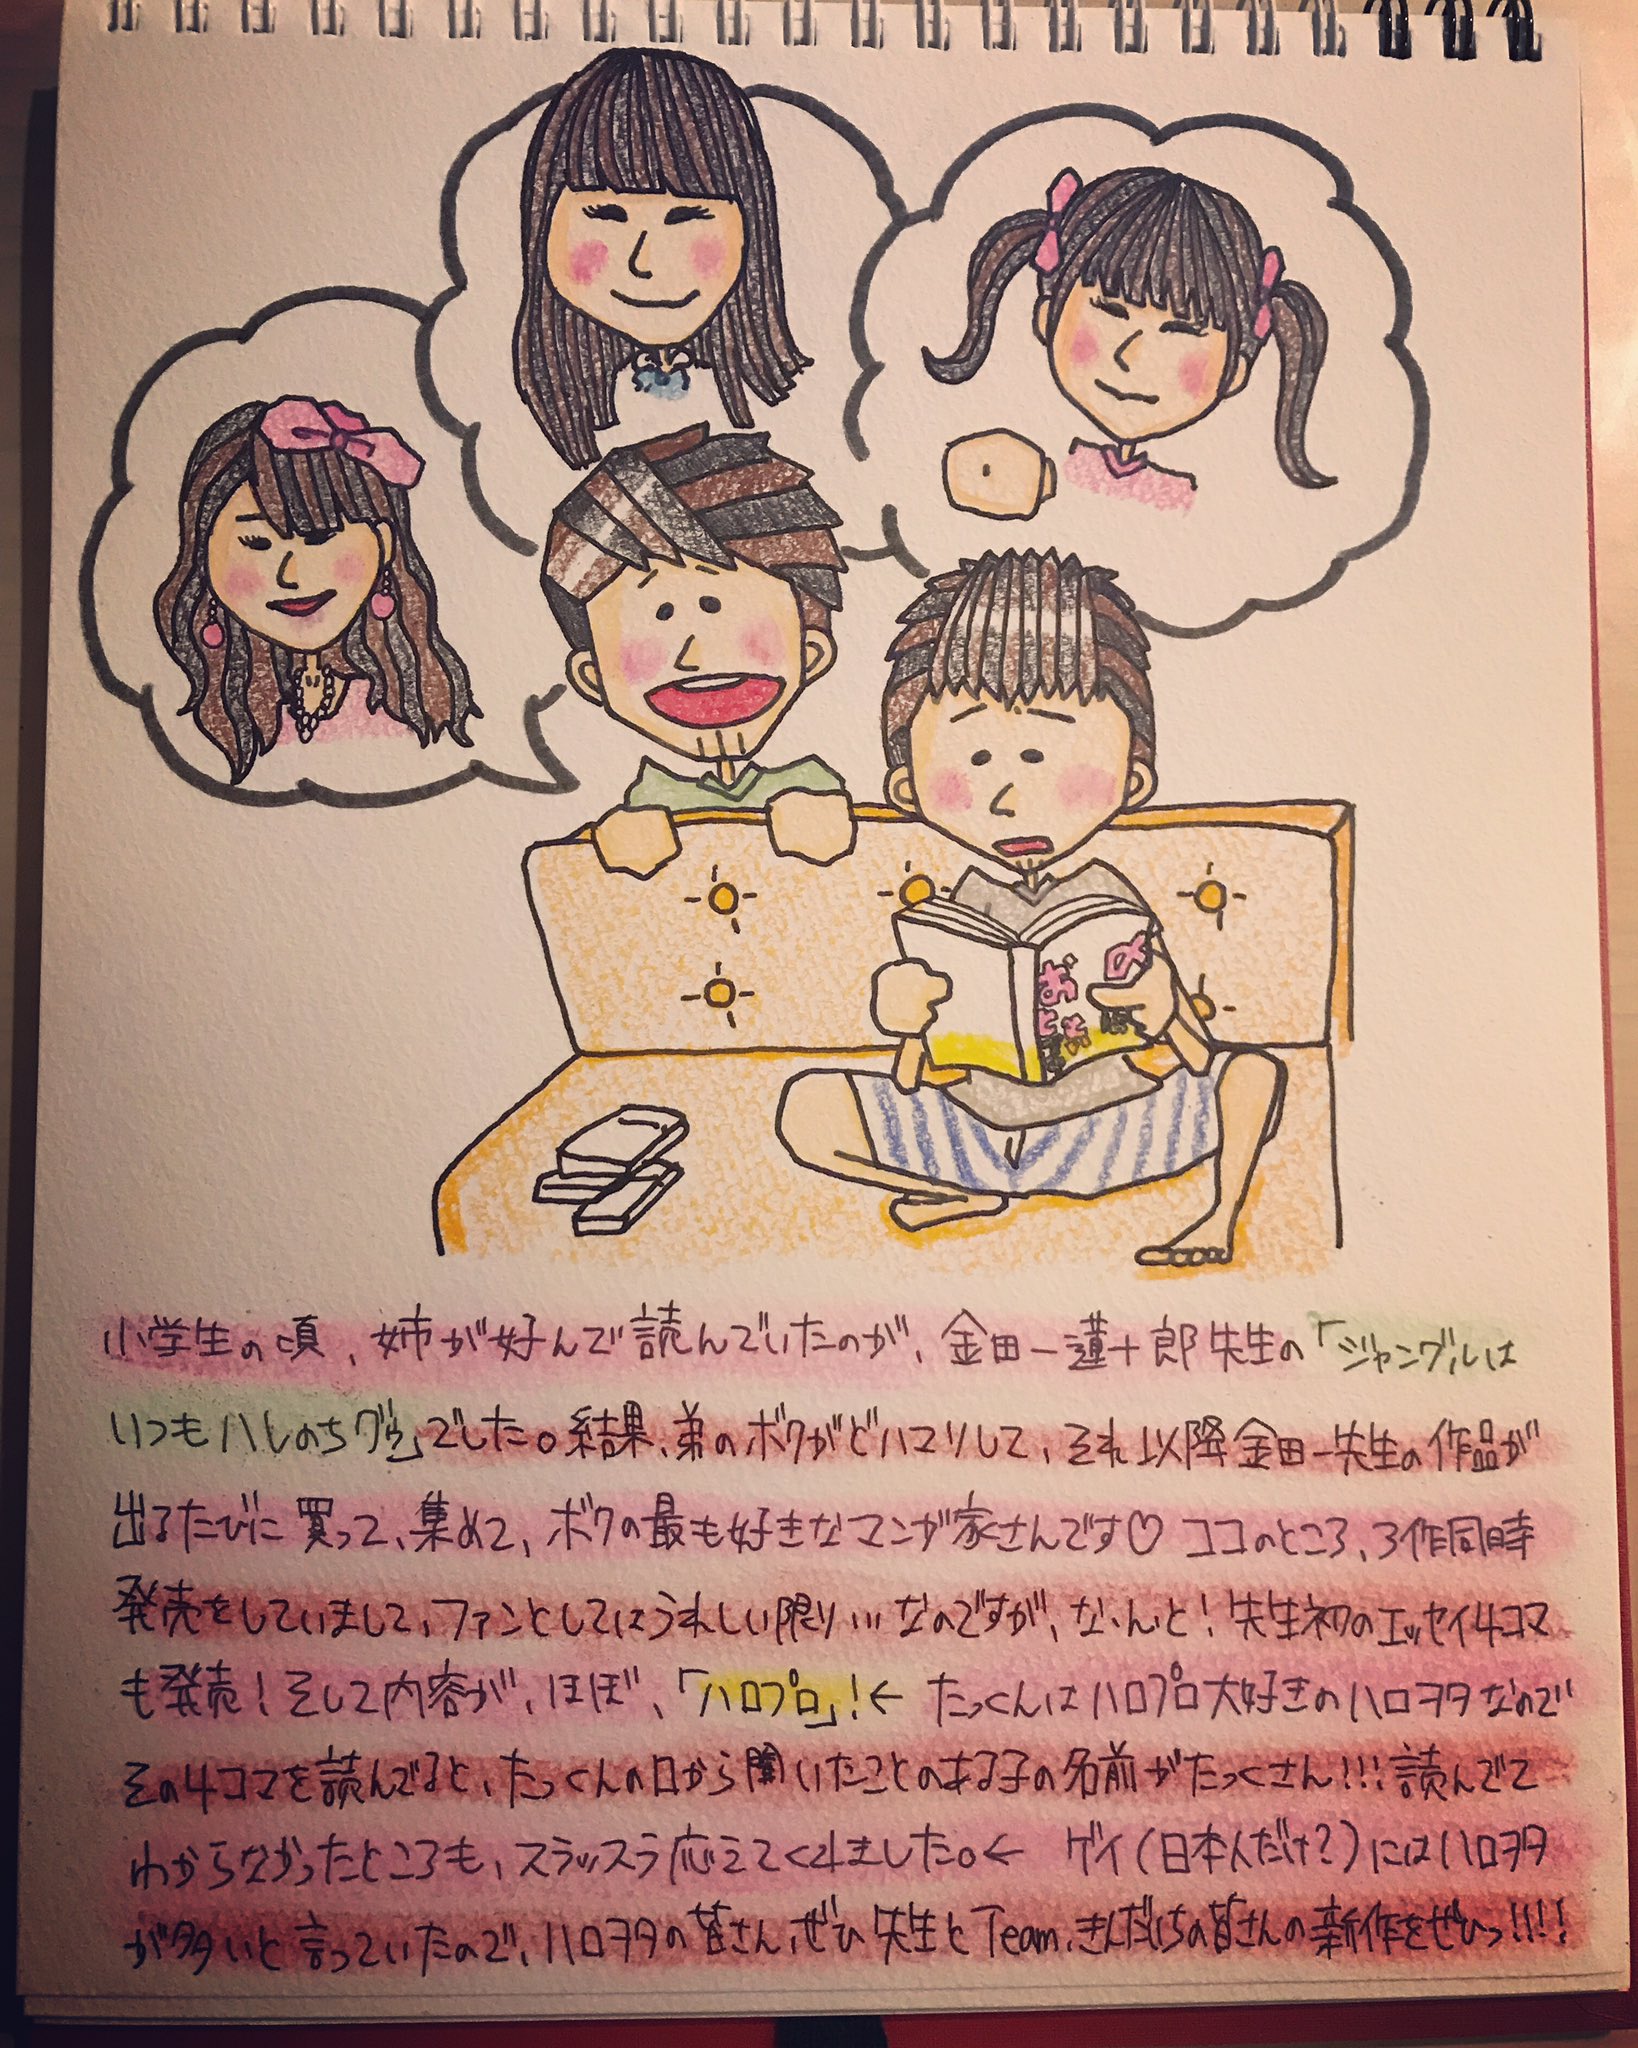 おとめ
小学生の頃、姉が好んで読んでいたのが、金田一蓮十郎先生の「ジャングルは
いつもハレのちグゥ」でした。結果、弟のボクがどハマリして、それ以降金田一先生の作品が
出るたびに買って、集めて、ボクの最も好きなマンガ家さんです♡ ココのところ、3作同時
発売をしていまして、ファンとしてはうれしい限り…なのですが、なんと!先生初のエッセイ4コマ
も発売!そして内容が、ほぼ、「ハロプロ」!← たっくんはハロプロ大好きのハロヲタなので
その4コマを読んでると、たっくんの口から聞いたことのある子の名前がたっくさん!!!読んでて
わからなかったところも、スラッスラ応えてくれました。← ゲイ(日本人だけ?)にはハロヲタ
が多いと言っていたので、ハロヲタの皆さん、ぜひ先生とTeam.きんだいちの皆さんの新作をぜひっ!!!!